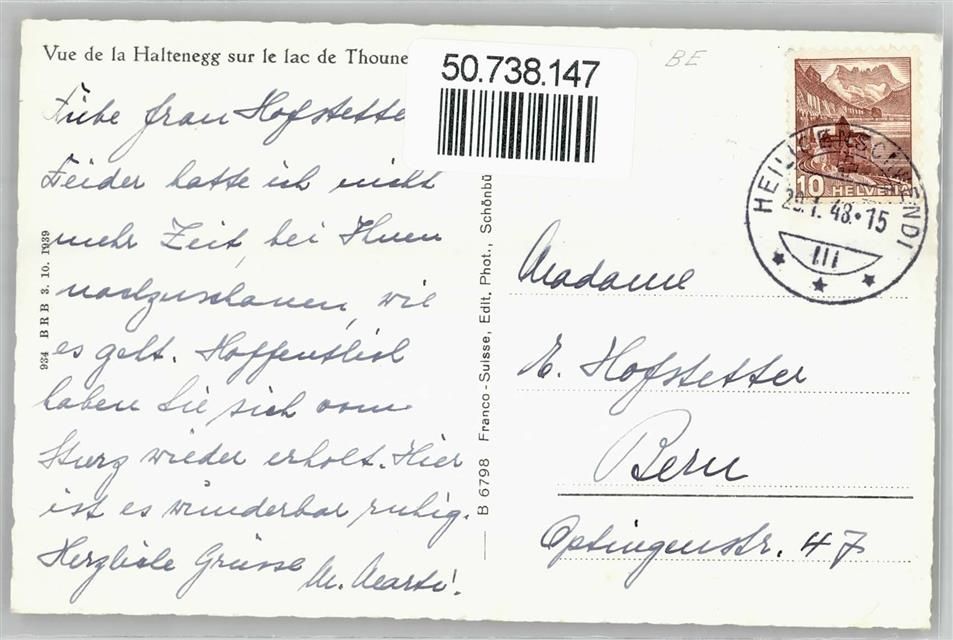 Vue de la Haltenegg sur le lac de Thoune
50.738.147
BE
Liebe Frau Hofstette
Leider hatte ich nicht
mehr Zeit, bei Ihnen
nachzuschauen, wie
es geht. Hoffentlich
haben Sie sich vom
Sturz wieder erholt. Hier
ist es wunderbar ruhig.
Herzliche Grüsse
M. Marti!
934 BRB 3. 10. 1939
B 6798 Franco-Suisse, Edit, Phot., Schönbü
10 HELVETIA
HEILIGENSCHWENDI
29.1.48.-15
Madame
E. Hofstetter
Bern
Optingenstr. 47